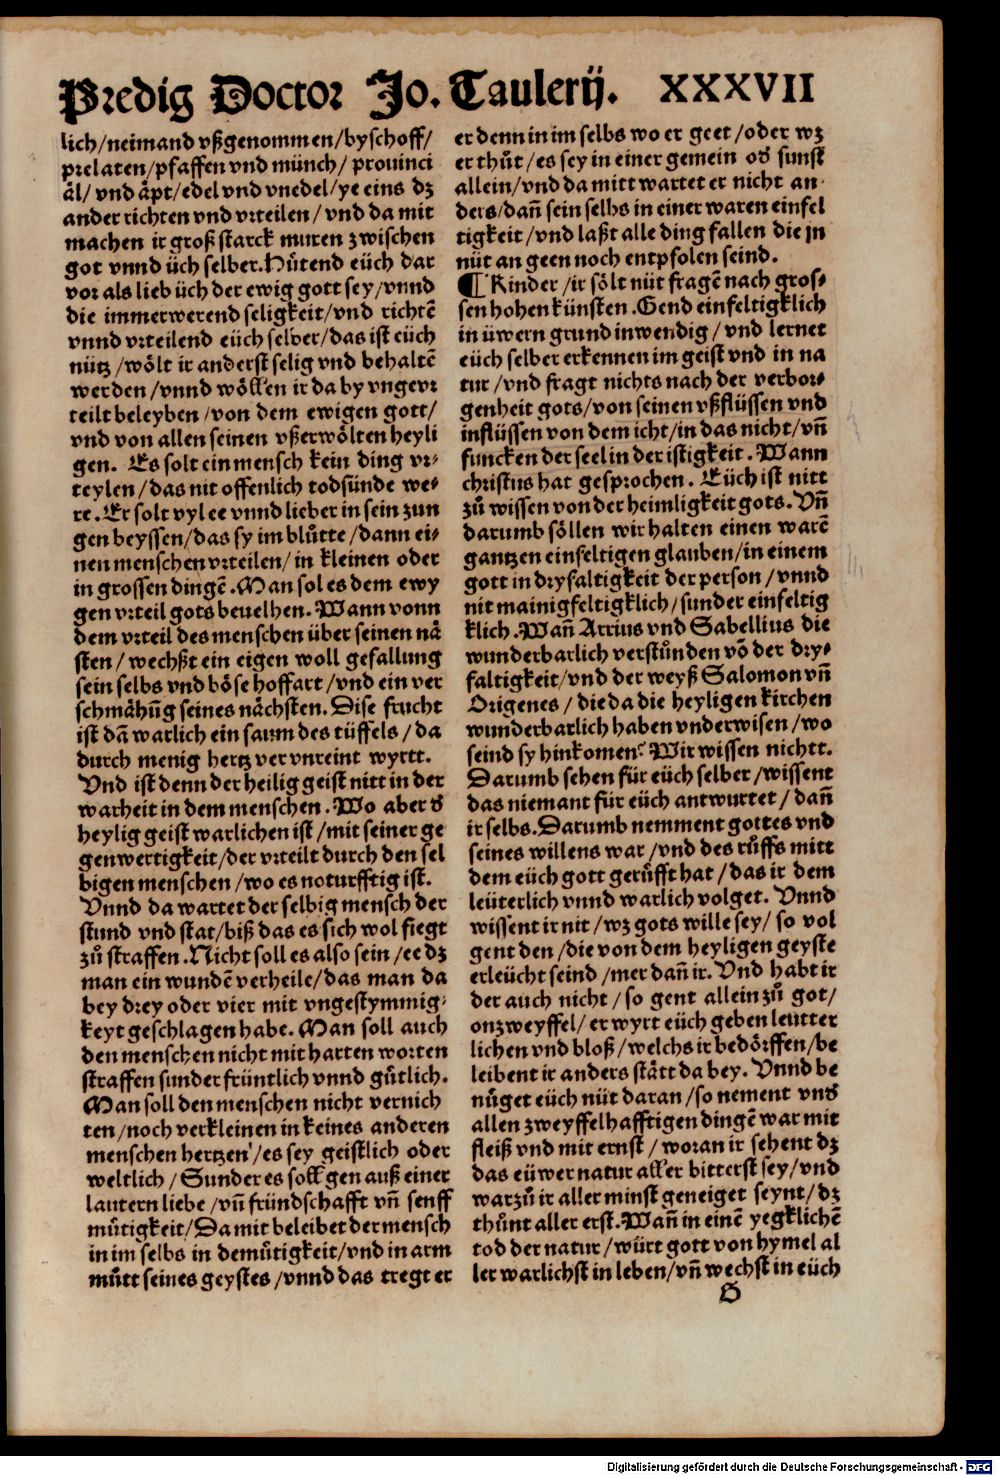 Predig Doctor Jo. Taulerij. XXXVII
lich/neimand vßgenommen/byschoff/
prelaten/pfaffen vnd münch/ prouinci
äl/ vnd äpt/edel vnd vnedel/ye eins dz
ander richten vnd vrteilen/vnd da mit
machen ir groß starck muren zwischen
got vnnd üch selber. Hůtend eüch dar
vor als lieb üch der ewig gott sey/vnnd
die immerwerend seligkeit/vnd richtē
vnnd vrteilend eüch selber/das ist eüch
nütz/wölt ir anderst selig vnd behaltē
werden/vnnd wöllen ir da by vngevr
teilt beleyben/von dem ewigen gott/
vnd von allen seinen vßerwölten heyli
gen. Es solt ein mensch kein ding vr⸗
teylen/das nit offenlich todsünde we⸗
re. Er solt vyl ee vnnd lieber in sein zun
gen beyssen/das sy im blůtte/dann ei⸗
nen menschen vrteilen/in kleinen oder
in grossen dingē. Man sol es dem ewy
gen vrteil gots beuelhen. Wann vonn
dem vrteil des menschen über seinen nä
sten/wechßt ein eigen woll gefallung
sein selbs vnd böse hoffart/vnd ein ver
schmähūg seines nächsten. Dise frucht
ist dā warlich ein saum des tüffels/da
durch menig hertz ver vnreint wyrtt.
Vnd ist denn der heilig geist nitt in der
warheit in dem menschen. Wo aber d̕
heylig geist warlichen ist/mit seiner ge
genwertigkeit/der vrteilt durch den sel
bigen menschen/wo es noturfftig ist.
Vnnd da wartet der selbig mensch der
stund vnd stat/biß das es sich wol fiegt
zů straffen. Nicht soll es also sein/ee dz
man ein wundē verheile/das man da
bey drey oder vier mit vngestymmig⸗
keyt geschlagen habe. Man soll auch
den menschen nicht mit harten worten
straffen sunder früntlich vnnd gůtlich.
Man soll den menschen nicht vernich
ten/noch verkleinen in keines anderen
menschen hertzen/es sey geistlich oder
weltlich/Sunder es soll gen auß einer
lautern liebe/vñ fründschafft vñ senff
můtigkeit/Da mit beleibet der mensch
in im selbs in demůtigkeit/vnd in arm
můtt seines geystes/vnnd das tregt er
er denn in im selbs wo er geet/oder wz
er thůt/es sey in einer gemein od̕ sunst
allein/vnd da mitt wartet er nicht an⸗
ders/dañ sein selbs in einer waren einfel
tigkeit/vnd laßt alle ding fallen die jn
nüt an geen noch entpfolen seind.
¶ Kinder/ir sölt nüt fragē nach gros⸗
sen hohen künsten. Gend einfeltigklich
in üwern grund inwendig/vnd lernet
eüch selber erkennen im geist vnd in na
tur/vnd fragt nichts nach der verbor⸗
genheit gots/von seinen vßflüssen vnd
inflüssen von dem icht/in das nicht/vñ
funcken der seel in der istigkeit. Wann
christus hat gesprochen. Eüch ist nitt
zů wissen von der heimligkeit gots. Vñ
darumb söllen wir halten einen warē
gantzen einfeltigen glauben/in einem
gott in dryfaltigkeit der person/vnnd
nit mainigfeltigklich/sunder einfeltig
klich. Wañ Arrius vnd Sabellius die
wunderbarlich verstůnden vō der dry⸗
faltigkeit/vnd der weyß Salomon vñ
Origenes/die da die heyligen kirchen
wunderbarlich haben vnderwisen/wo
seind sy hinkomen? Wir wissen nichtt.
Darumb sehen für eüch selber/wissent
das niemant für eüch antwurtet/dañ
ir selbs. Darumb nemment gottes vnd
seines willens war/vnd des růffs mitt
dem eüch gott gerůfft hat/das ir dem
leüterlich vnnd warlich volget. Vnnd
wissent ir nit/wz gots wille sey/ so vol
gent den/die von dem heyligen geyste
erleücht seind/mer dañ ir. Vnd habt ir
der auch nicht/so gent allein zů got/
onzweyffel/er wyrt eüch geben leutter
lichen vnd bloß/welchs ir bedörffen/be
leibent ir anders stätt da bey. Vnnd be
nůget eüch nüt daran/so nement vnd̕
allen zweyffelhafftigen dingē war mit
fleiß vnd mit ernst/woran ir sehent dz
das eüwer natur aller bitterst sey/vnd
warzů ir aller minst geneiget seynt/dz
thůnt aller erst. Wañ in einē yegklichē
tod der natur/würt gott von hymel al
ler warlichst in leben/vñ wechst in eüch
G
Digitalisierung gefördert durch die Deutsche Forschungsgemeinschaft - DFG